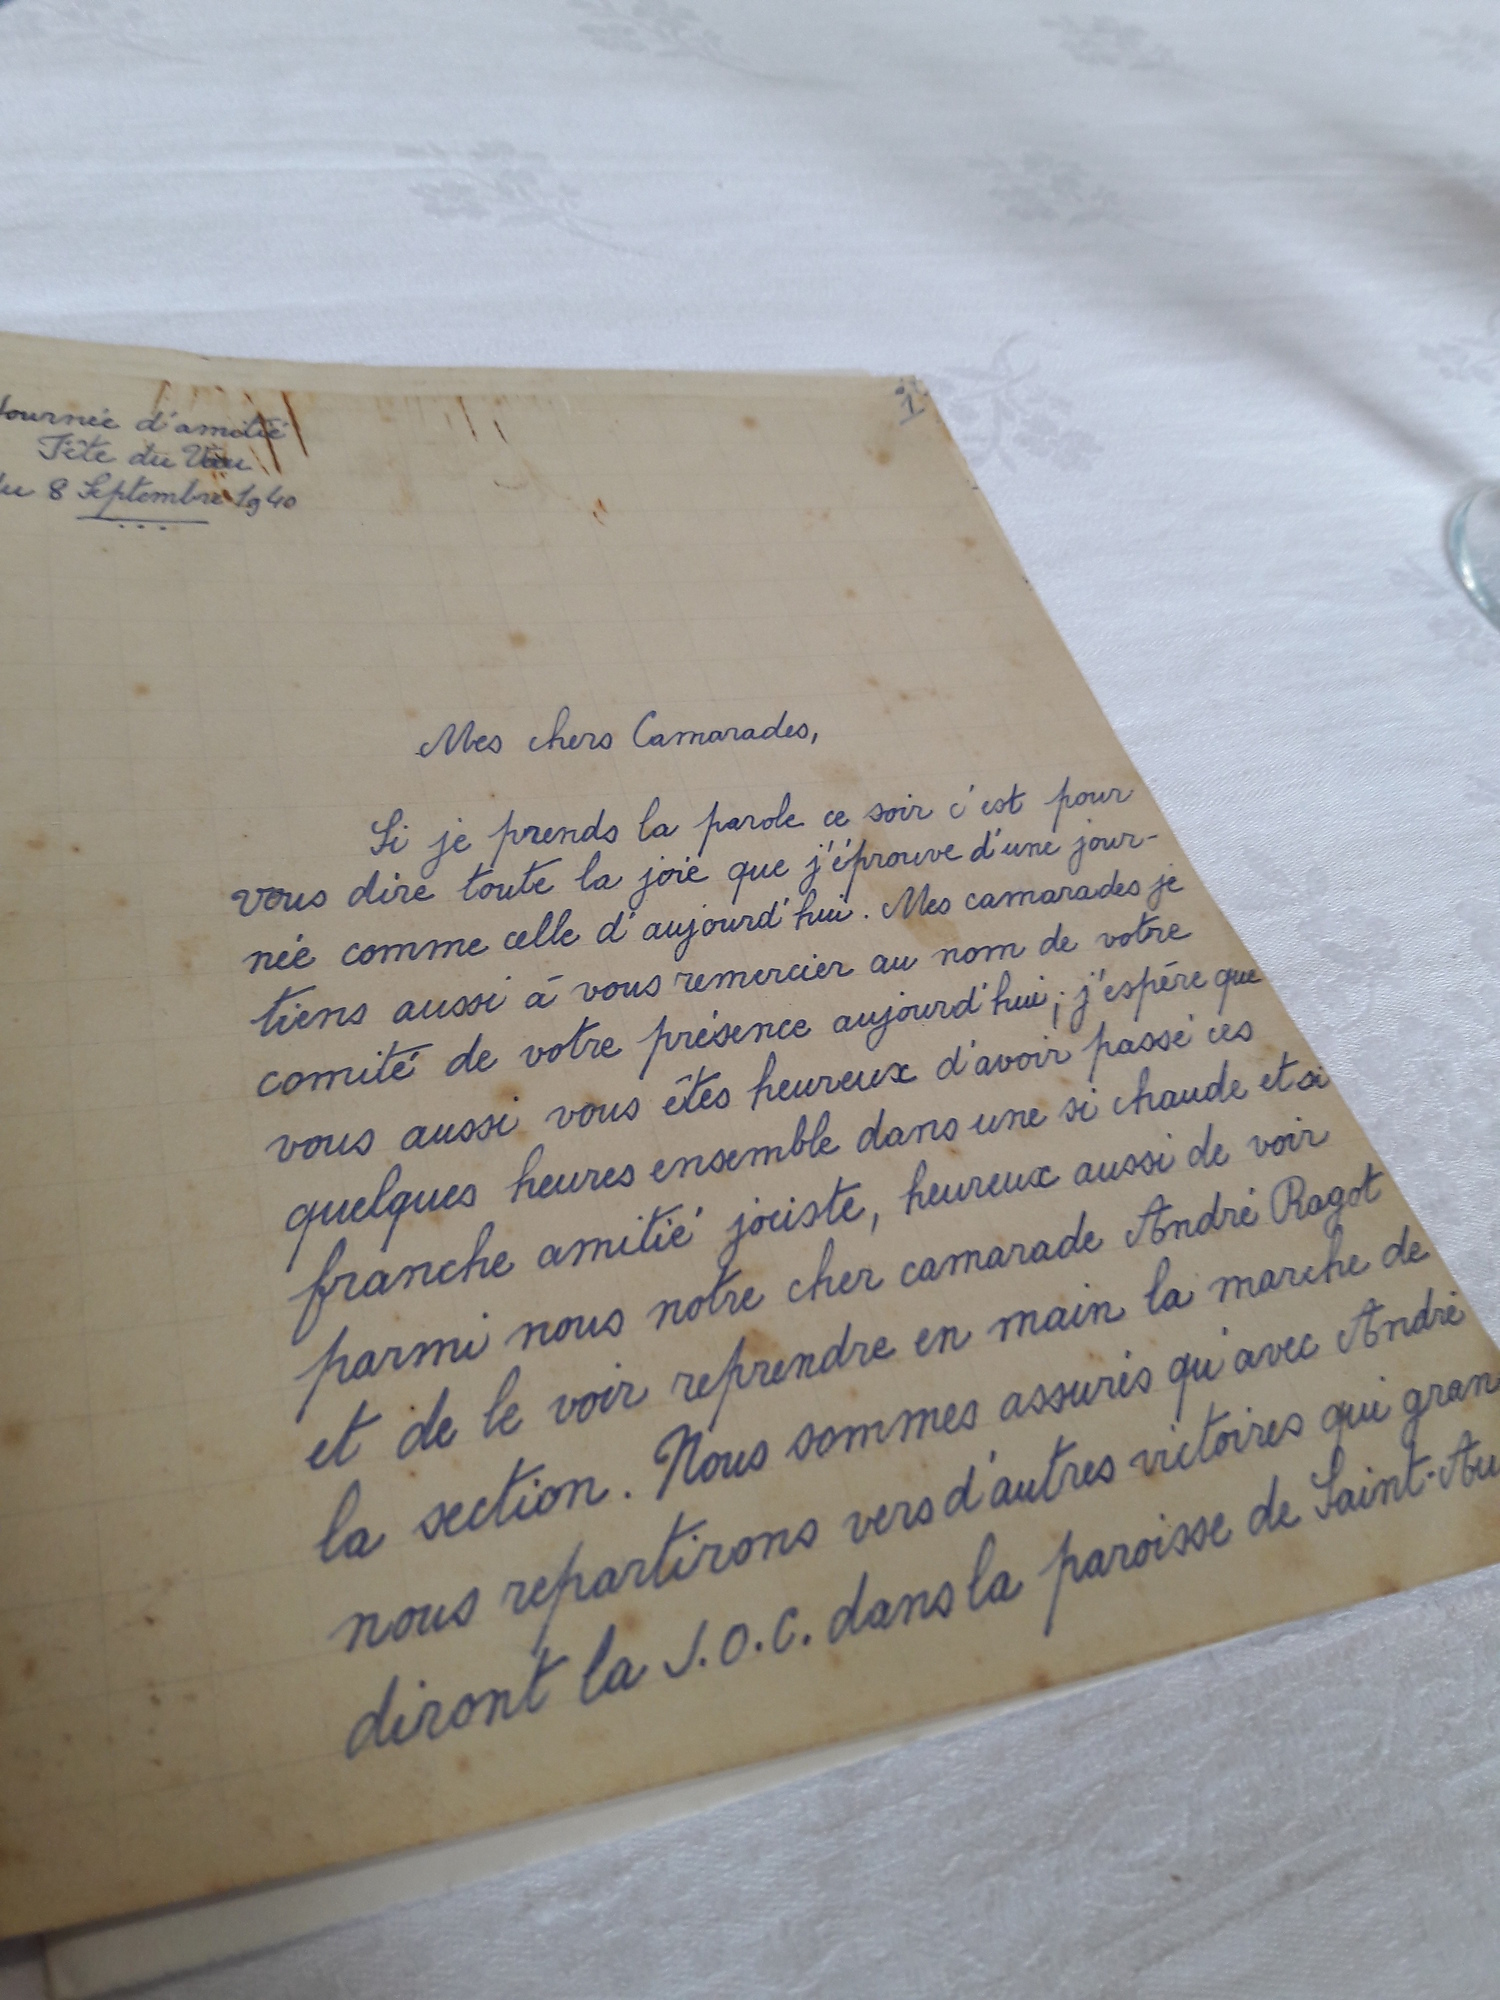 Journée d'amitié
Fête du Vœu
du 8 Septembre 1940
1
Mes chers Camarades,
Si je prends la parole ce soir c'est pour
vous dire toute la joie que j'éprouve d'une jour-
née comme celle d'aujourd'hui. Mes camarades je
tiens aussi à vous remercier au nom de votre
comité de votre présence aujourd'hui; j'espère que
vous aussi vous êtes heureux d'avoir passé ces
quelques heures ensemble dans une si chaude et si
franche amitié jociste, heureux aussi de voir
parmi nous notre cher camarade André Ragot
et de le voir reprendre en main la marche de
la section. Nous sommes assurés qu'avec André
nous repartirons vers d'autres victoires qui gran
diront la J.O.C. dans la paroisse de Saint-Au